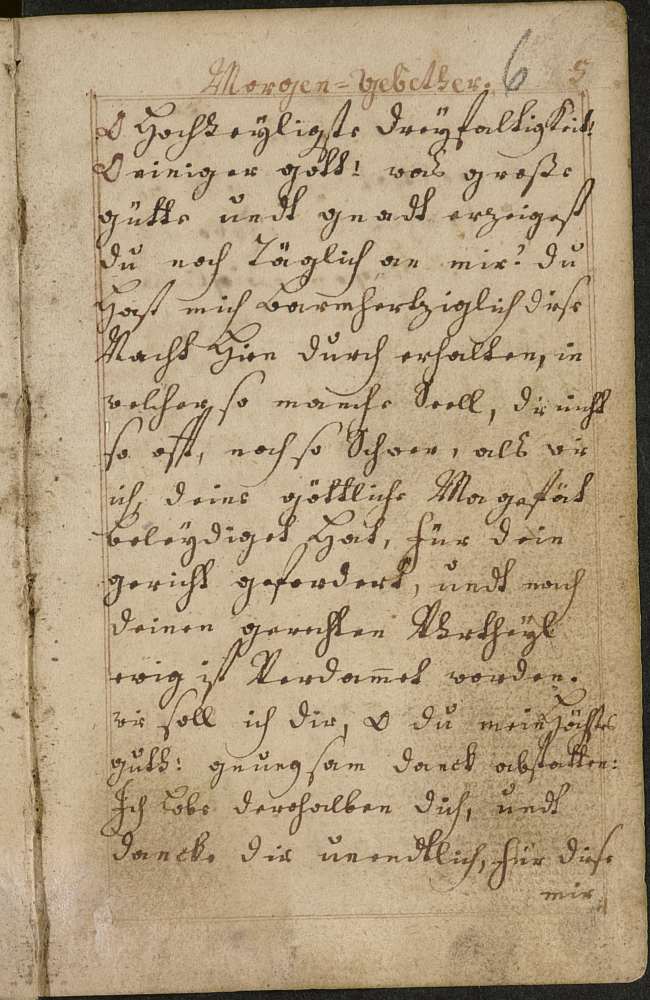 Morgen-Gebether. 6 5
O Hochheyligste Dreyfaltigkeit!
O einiger gott! was große
gütte undt gnadt erzeigest
du noch Täglich an mir? du
Hast mich Barmhertziglich diese
Nacht Hien durch erhalten, in
welcher so manche Seell, die nicht
so oft, noch so Schwer, als wie
ich deine göttliche Magestät
beleydiget Hat, für dein
gericht gefordert, undt nach
deinen gerechten Vrtheyl
ewig ist Verdam̅et worden.
wie soll ich dir, O du mein Höchstes
guth! genugsam danck abstatten:
Ich Lobe derohalben dich, undt
dancke dir unendtlich, für diese
mir